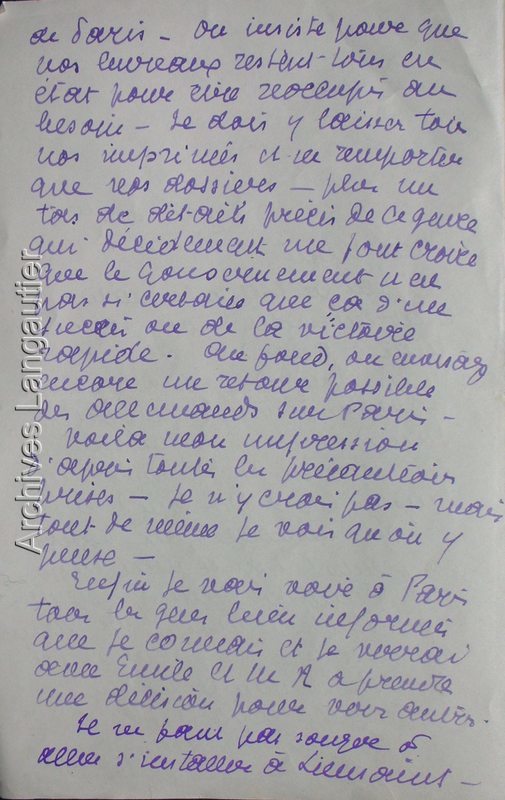 de Paris – on insiste pour que
nos bureaux restent tous en
état pour être réoccupés au
besoin – Je dois y laisser tous
nos imprimés et n'en remporter
que nos dossiers – plus un
tas de détails précis de ce genre
qui décidément me font croire
que le Gouvernement n'est
pas si certain que ça d'un
succès ou de la victoire
rapide. Au fond, on envisage
encore un retour possible
des allemands sur Paris –
Voilà mon impression
d'après toutes les précautions
prises – Je n'y crois pas – mais
tout de même je vois qu'on y
pense –
Enfin je vais voir à Paris
tous les gens bien informés
que je connais et je verrai
avec Emile et M. R à prendre
une décision pour vous autres.
Je ne peux pas songer à
aller s'installer à
Archives Langautier